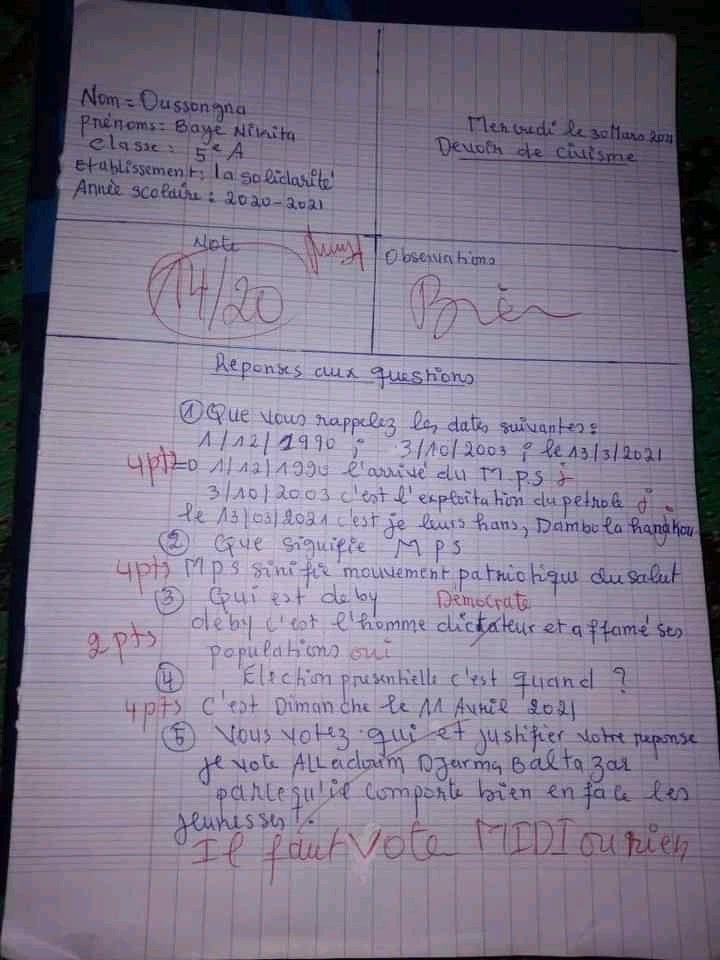 Nom = Oussongna
Prénoms = Baye Nikita
Classe : 5e A
Etablissement : la solidarité
Année scolaire : 2020-2021
Mercredi le 30 Mars 2021
Devoir de civisme
Note
14/20
Observations
Bien
Reponses aux questions
① Que vous rappelez les dates suivantes :
1/12/1990 ; 3/10/2003 ; le 13/3/2021
4pts => 1/12/1990 l'arrivé du M.P.S
3/10/2003 c'est l'exploitation du petrole
le 13/03/2021 c'est je leurs hans, Dambola
② Que signifie MPS
4pts MPS sinifie mouvement patriotique du salut
③ Qui est deby Democrate
deby c'est l'homme dictateur et affamé ses
2pts populations oui
④ Election presentielle c'est quand ?
4pts C'est Dimanche le 11 Avril 2021
⑤ Vous votez qui et justifier votre reponse
je vote Alladoum Djarma Baltazar
parcequ'il comporte bien en face les
jeunesses.
Il faut Vote MIDI ou rien